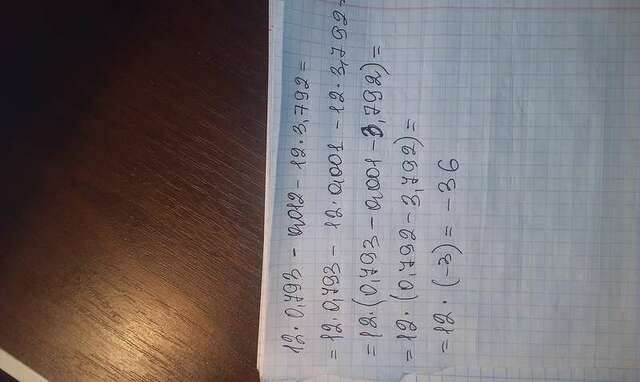 12·0,793 - 0,012 - 12·3,792 =
= 12·0,793 - 12·0,001 - 12·3,792 =
= 12·(0,793 - 0,001 - 3,792) =
= 12·(0,792 - 3,792) =
= 12·(-3) = -36